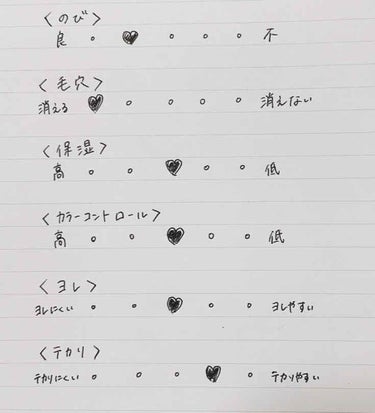 〈のび〉
良 ∘ ♥ ∘ ∘ ∘ 不
〈毛穴〉
消える ♥ ∘ ∘ ∘ ∘ 消えない
〈保湿〉
高 ∘ ∘ ♥ ∘ ∘ 低
〈カラーコントロール〉
高 ∘ ∘ ♥ ∘ ∘ 低
〈ヨレ〉
ヨレにくい ∘ ∘ ♥ ∘ ∘ ヨレやすい
〈テカリ〉
テカりにくい ∘ ∘ ∘ ♥ ∘ テカりやすい